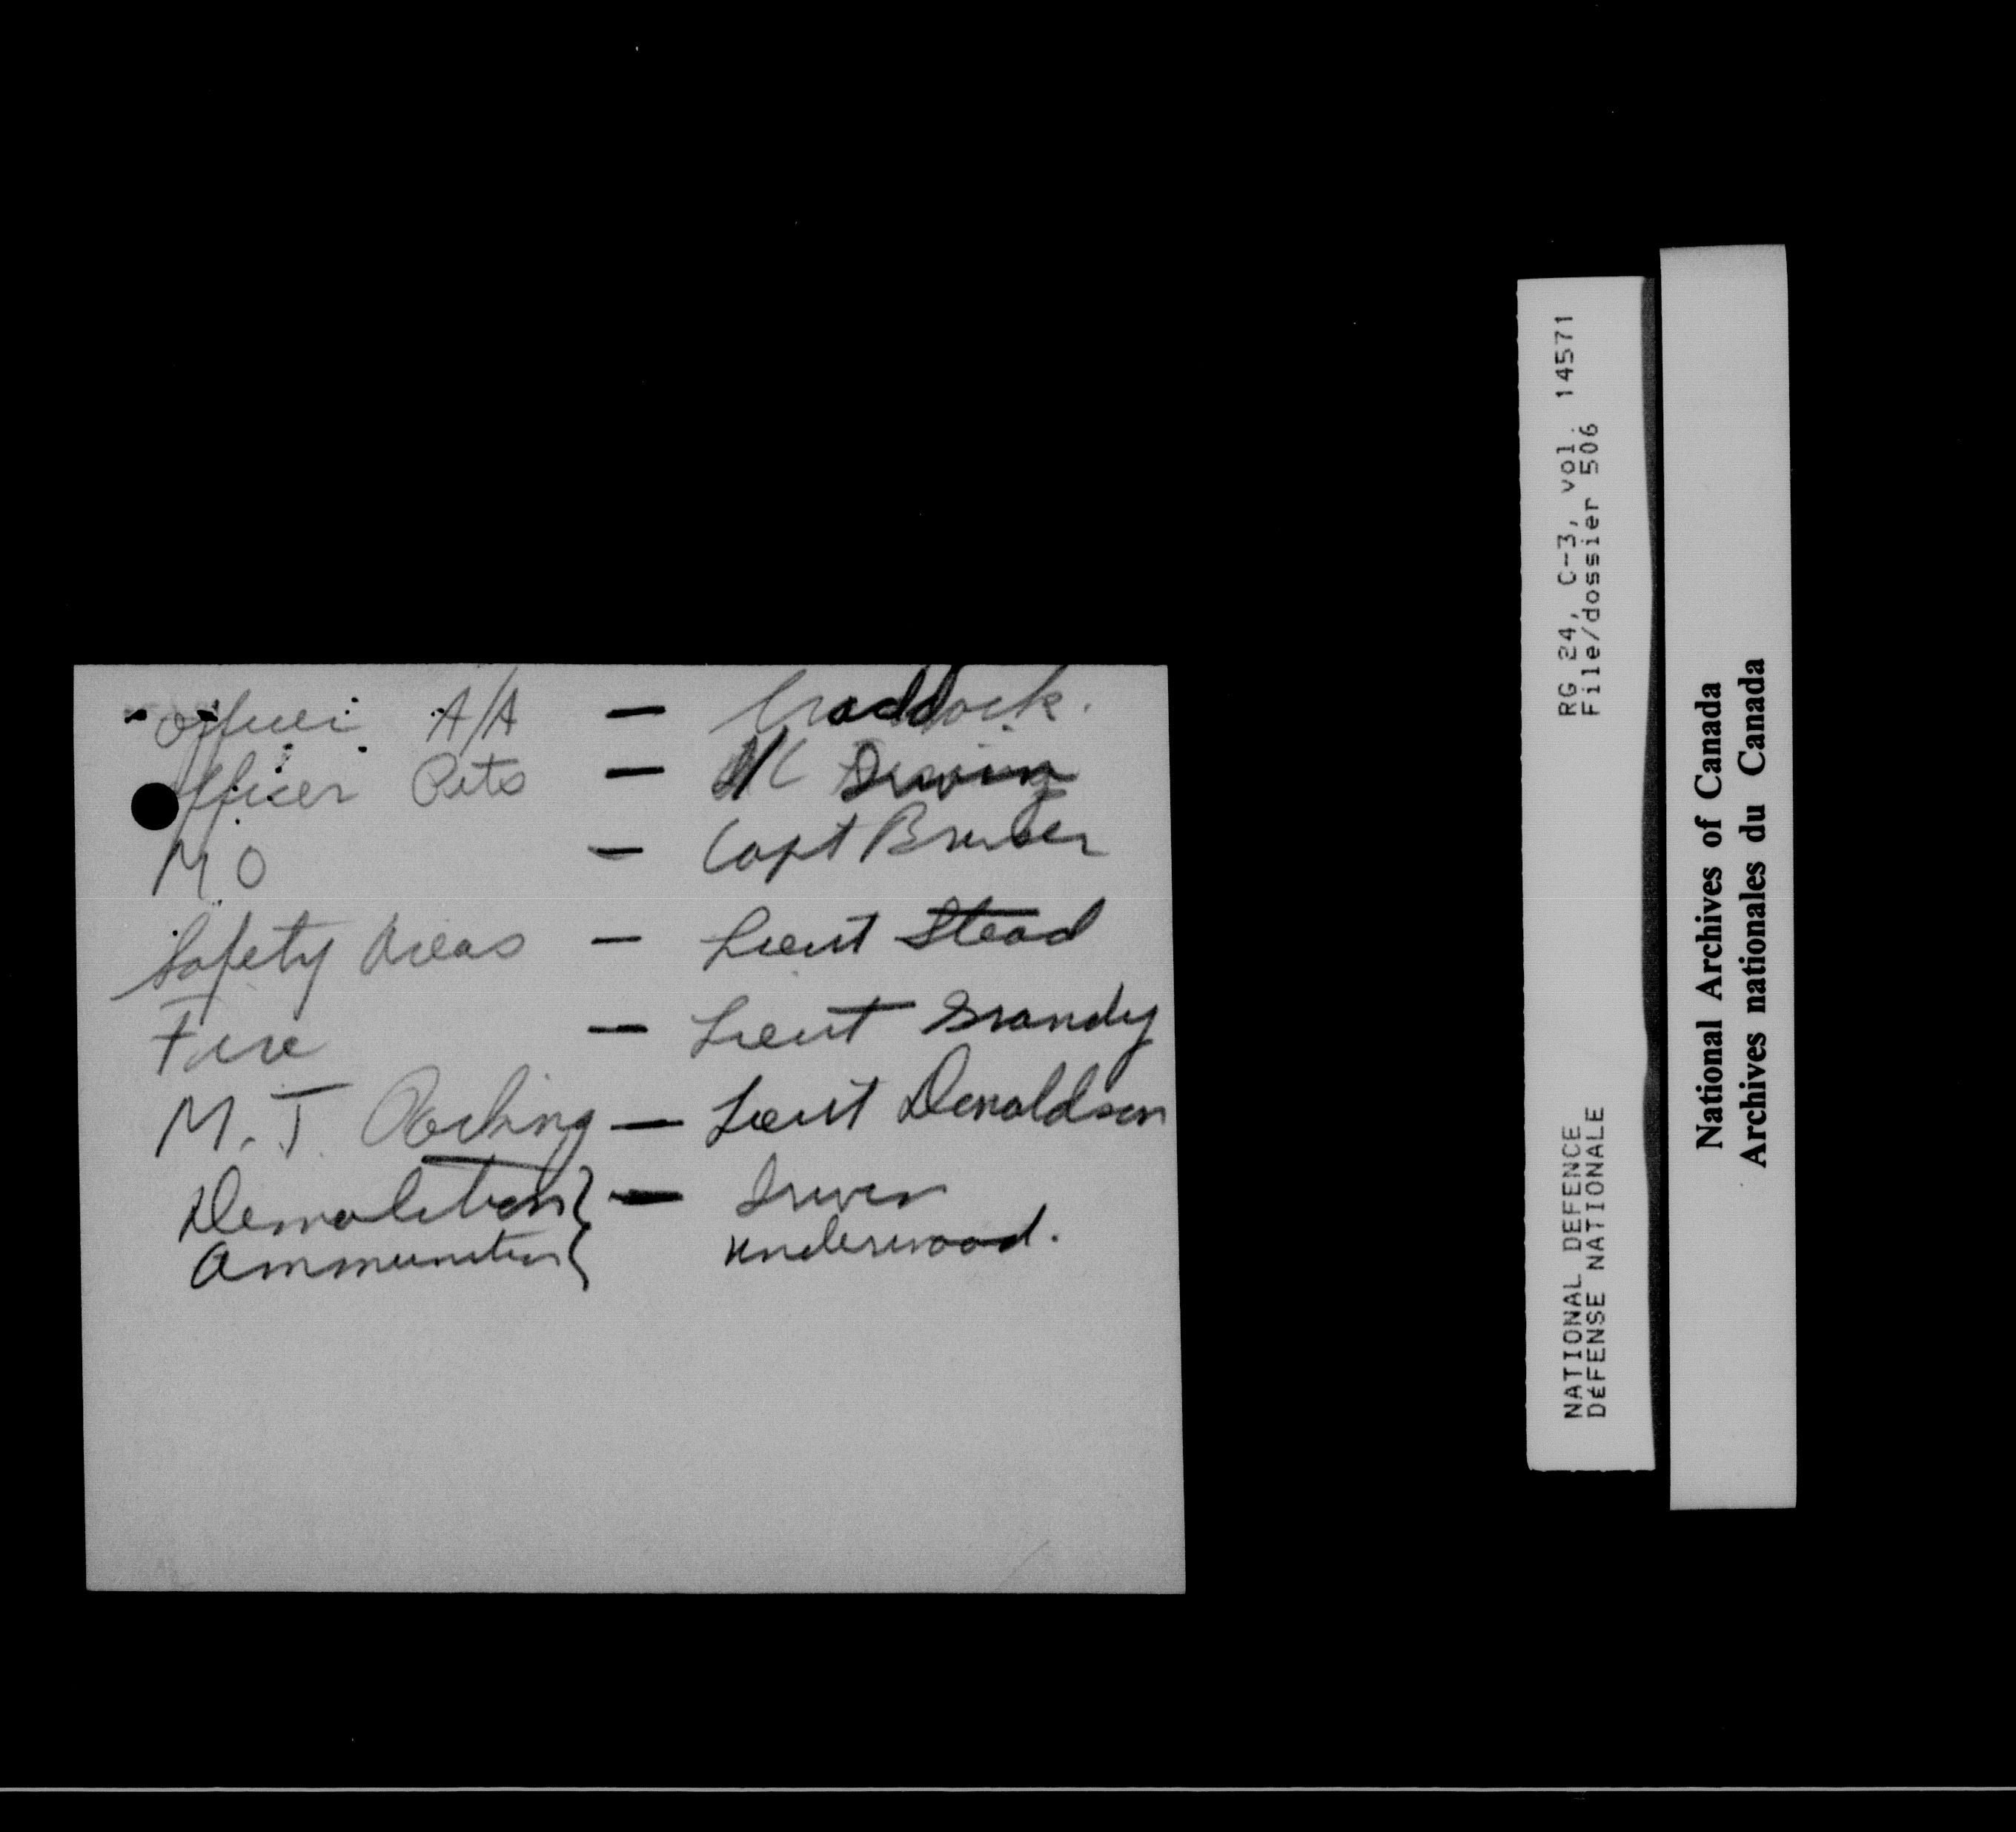 Officer A/A — Craddock.
Officer Pits —
M O — Capt
Safety Areas — Lieut Stead
Fire — Lieut Grandy
M. T. Parking — Lieut Donaldson
Demolition } —
Ammunition { Underwood.
RG 24, C-3, vol. 14571
File/dossier 506
NATIONAL DEFENCE
DÉFENSE NATIONALE
National Archives of Canada
Archives nationales du Canada